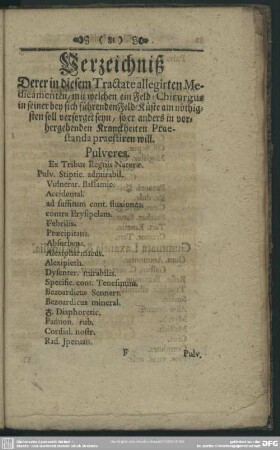 (81)
Verzeichniß
Derer in diesem Tractate allegirten Me-
dicamenten, mit welchen ein Feld-Chirurgus
in seiner bey sich führenden Feld-Küste am nöthig-
sten soll versorget seyn, so er anders in vor-
hergehenden Kranckheiten Prae-
standa praestiren will.
Pulveres.
Ex Tribus Regnis Naturæ.
Pulv. Stiptic. admirabil.
Vulnerar. Balsamic.
Accidental.
ad suffitum cont. fluxiones
contra Erysipelam.
Febrilis.
Præcipitans.
Absorbens.
Alexipharmacus.
Alexipieth.
Dysenter. mirabilis.
Specific. cont. Tenesmum.
Bezoardicus Sennert.
Bezoardicus mineral.
Diaphoretic.
Passion. rub.
Cordial. nostr.
Rad. Jpecuan.
F
Pulv.